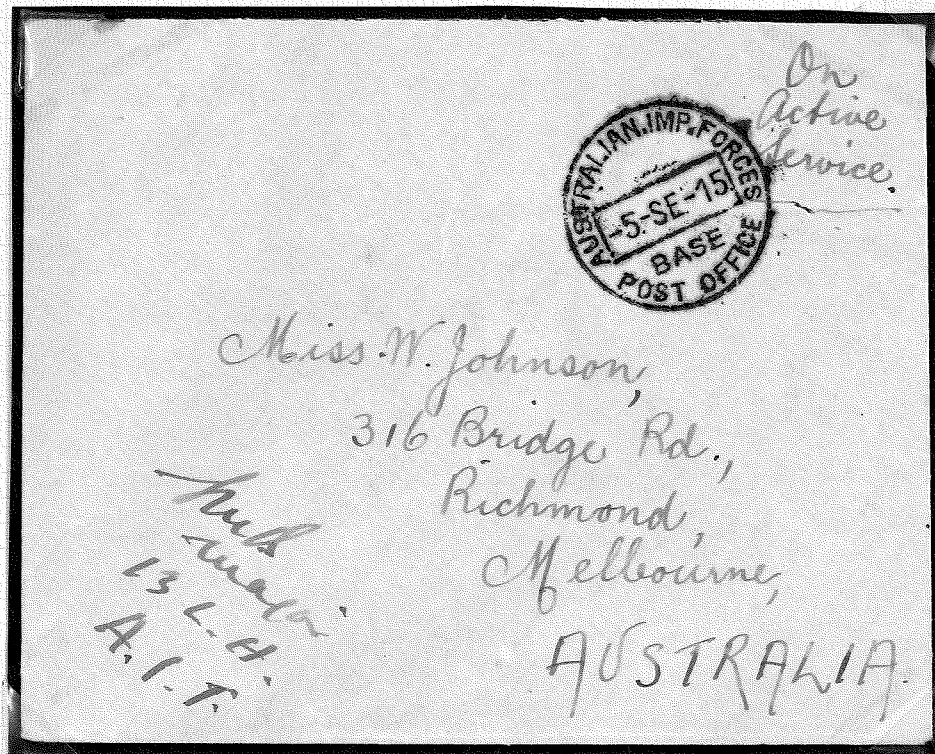 On
Active
Service.
AUSTRALIAN.IMP.FORCES
-5-SE-15
BASE
POST OFFICE
Miss.W. Johnson,
316 Bridge Rd.,
Richmond,
Melbourne,
AUSTRALIA.
Major
13 L.H.
A.I.F.